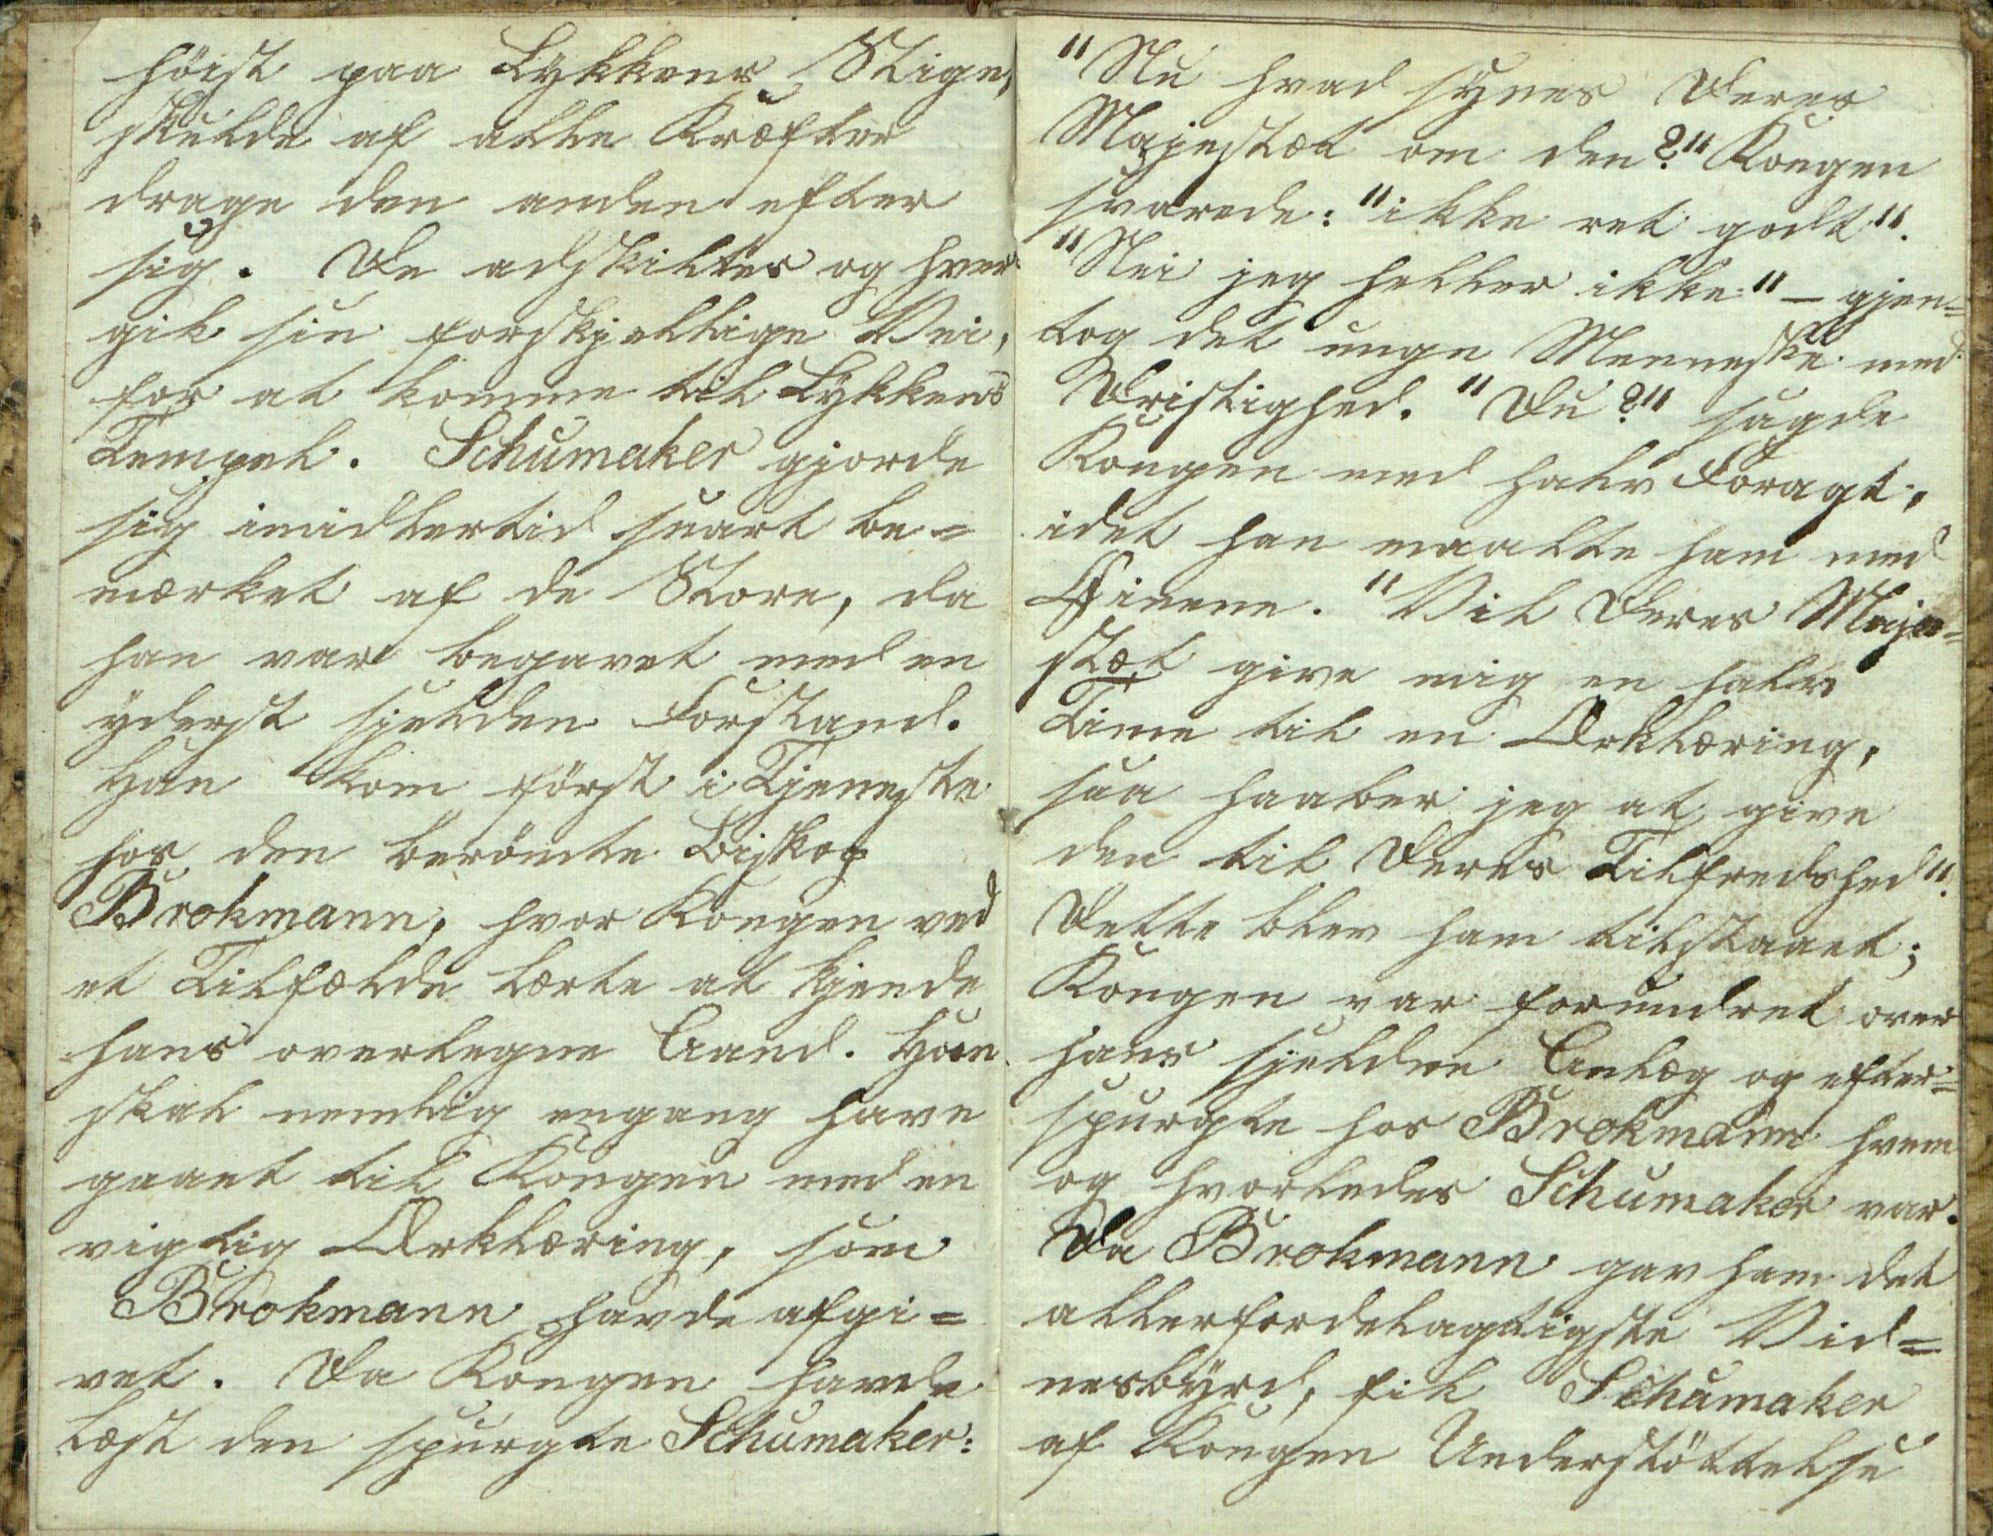 höist paa Lykkens Stige,
skulde af alle Kræfter
drage den anden efter
sig. De adskiltes og hver
gik sin forskjellige Vei,
for at komme til Lykkens
Tempel. Schumaker gjorde
sig imidlertid snart be=
mærket af de Store, da
han var begavet med en
yderst sjelden Forstand.
Han kom först i Tjeneste
hos den berömte Biskop
Brokmann, hvor Kongen ved
et Tilfælde lærte at kjende
hans overlegne Aand. Han
skal nemlig engang have
gaaet til Kongen med en
vigtig Erklæring, som
Brokmann havde afgi=
vet. Da Kongen havde
læst den spurgte Schumaker:
"Nu hvad synes Deres
Majestæt om den?" Kongen
svarede: "ikke ret godt".
"Nei jeg heller ikke" – gjen=
tog det unge Menneske med
Dristighed. "Du?" sagde
Kongen med halv Foragt,
idet han maalte ham med
Öinene. "Vil Deres Maje=
stæt give mig en halv
Time til en Erklæring,
saa haaber jeg at give
den til Deres Tilfredshed".
Dette blev ham tilstaaet;
Kongen var forundret over
hans sjeldne Anlæg og efter=
spurgte hos Brokmann hvem
og hvorledes Schumaker var.
Da Brokmann gav ham det
allerfordelagtigste Vid=
nesbyrd, fik Schumaker
af Kongen Understöttelse